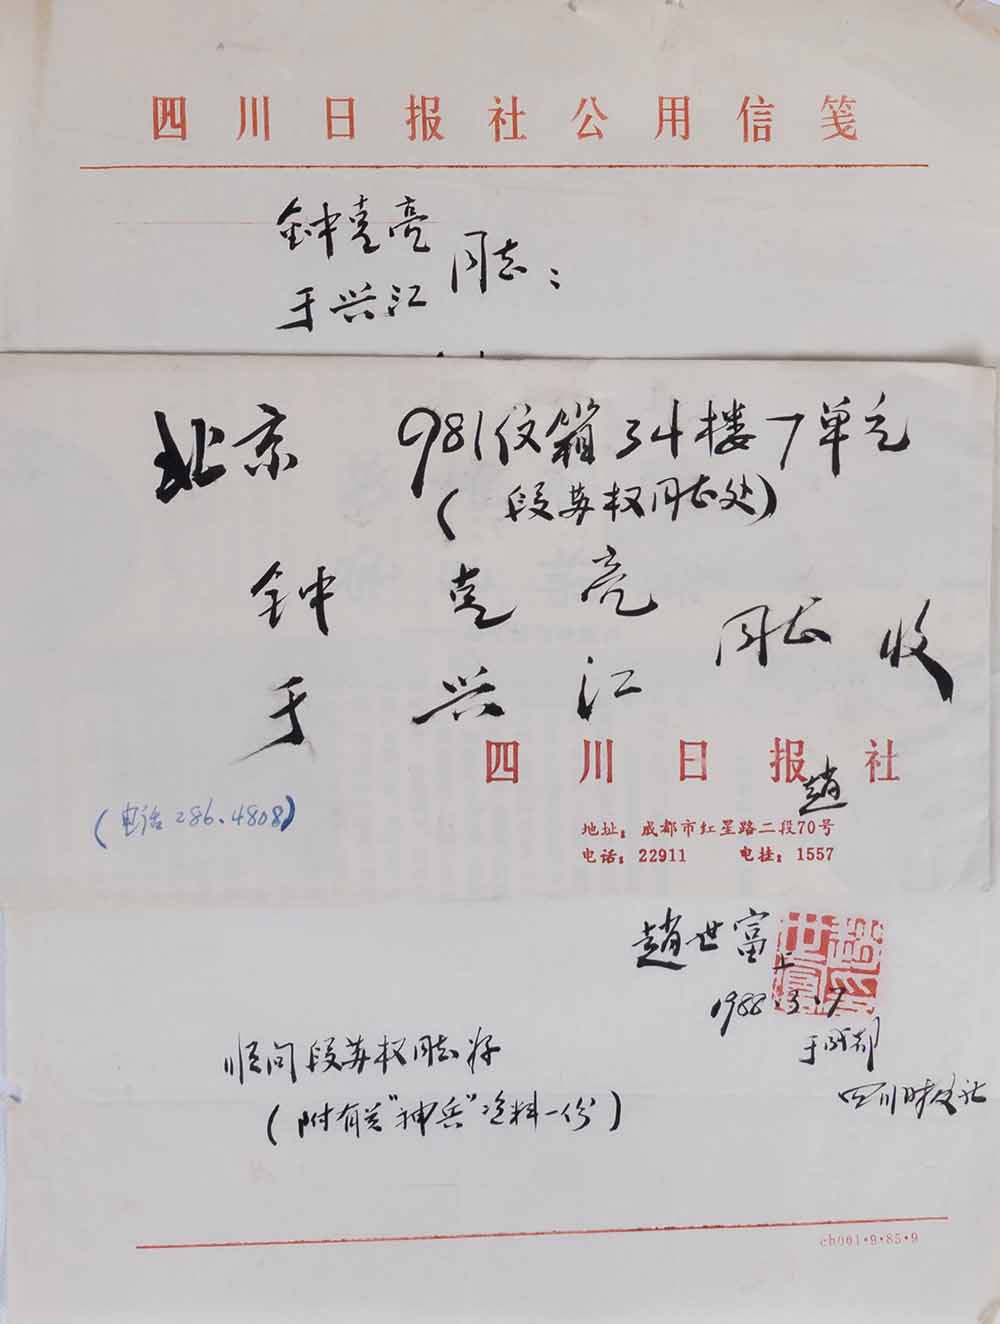 四川日报社公用信笺
钟克亮
于兴江 同志：
北京 981信箱34楼7单元
（段苏权同志处）
钟克亮
于兴江 同志 收
四川日报社
赵
（电话286.4808）
地址：成都市红星路二段70号
电话：22911 电挂：1557
趙世富上
1988.3.7
于成都
四川日报社
顺问段苏权同志好
（附有关"神兵"资料一份）
cb001·9·85·9